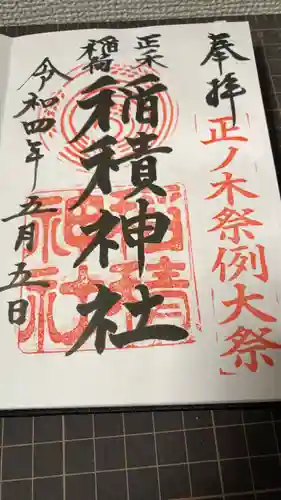 奉拝
「正ノ木祭例大祭」
正ノ木
稲荷
稲積神社
令和四年五月五日
稲積
神社